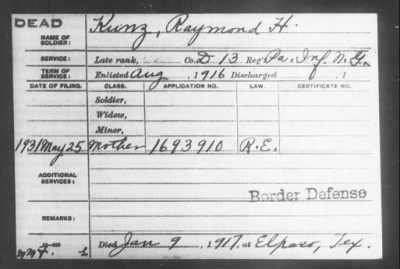 DEAD
NAME OF SOLDIER: Kunz, Raymond H.
SERVICE: Late rank, Co. D 13 Reg't Pa. Inf. N. G.
TERM OF SERVICE: Enlisted Aug , 1916 Discharged , 1
DATE OF FILING. CLASS. APPLICATION NO. LAW. CERTIFICATE NO.
Soldier,
Widow,
Minor,
1931 May 25 Mother 1693910 R.E.
ADDITIONAL SERVICES:
Border Defense
REMARKS:
Died Jan 9 , 1917, at Elpaso, Tex.